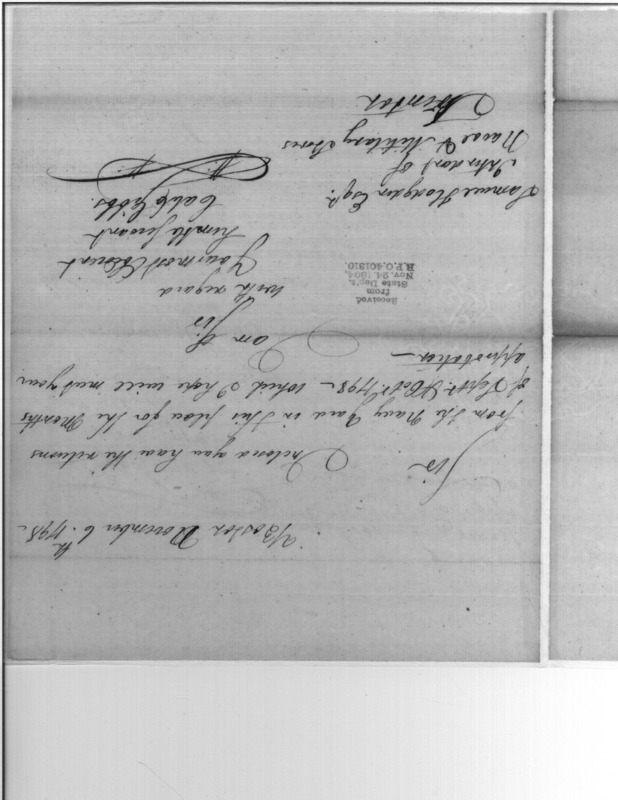 Boston November 6th 1795
Sir
Inclosed you have the returns
from the Navy Yard in this place for the Months
of Septr. & Octr. 1795 - which I hope will meet your
approbation -
I am
Sir
With regard
Your most Obedient
humble servant
Caleb Gibbs.
Received
from
State Dep't.
Nov. 24, 1894,
R.P.O. 401310.
Samuel Hodgdon Esqr.
Intendant of
Naval & Military Stores
Trenton